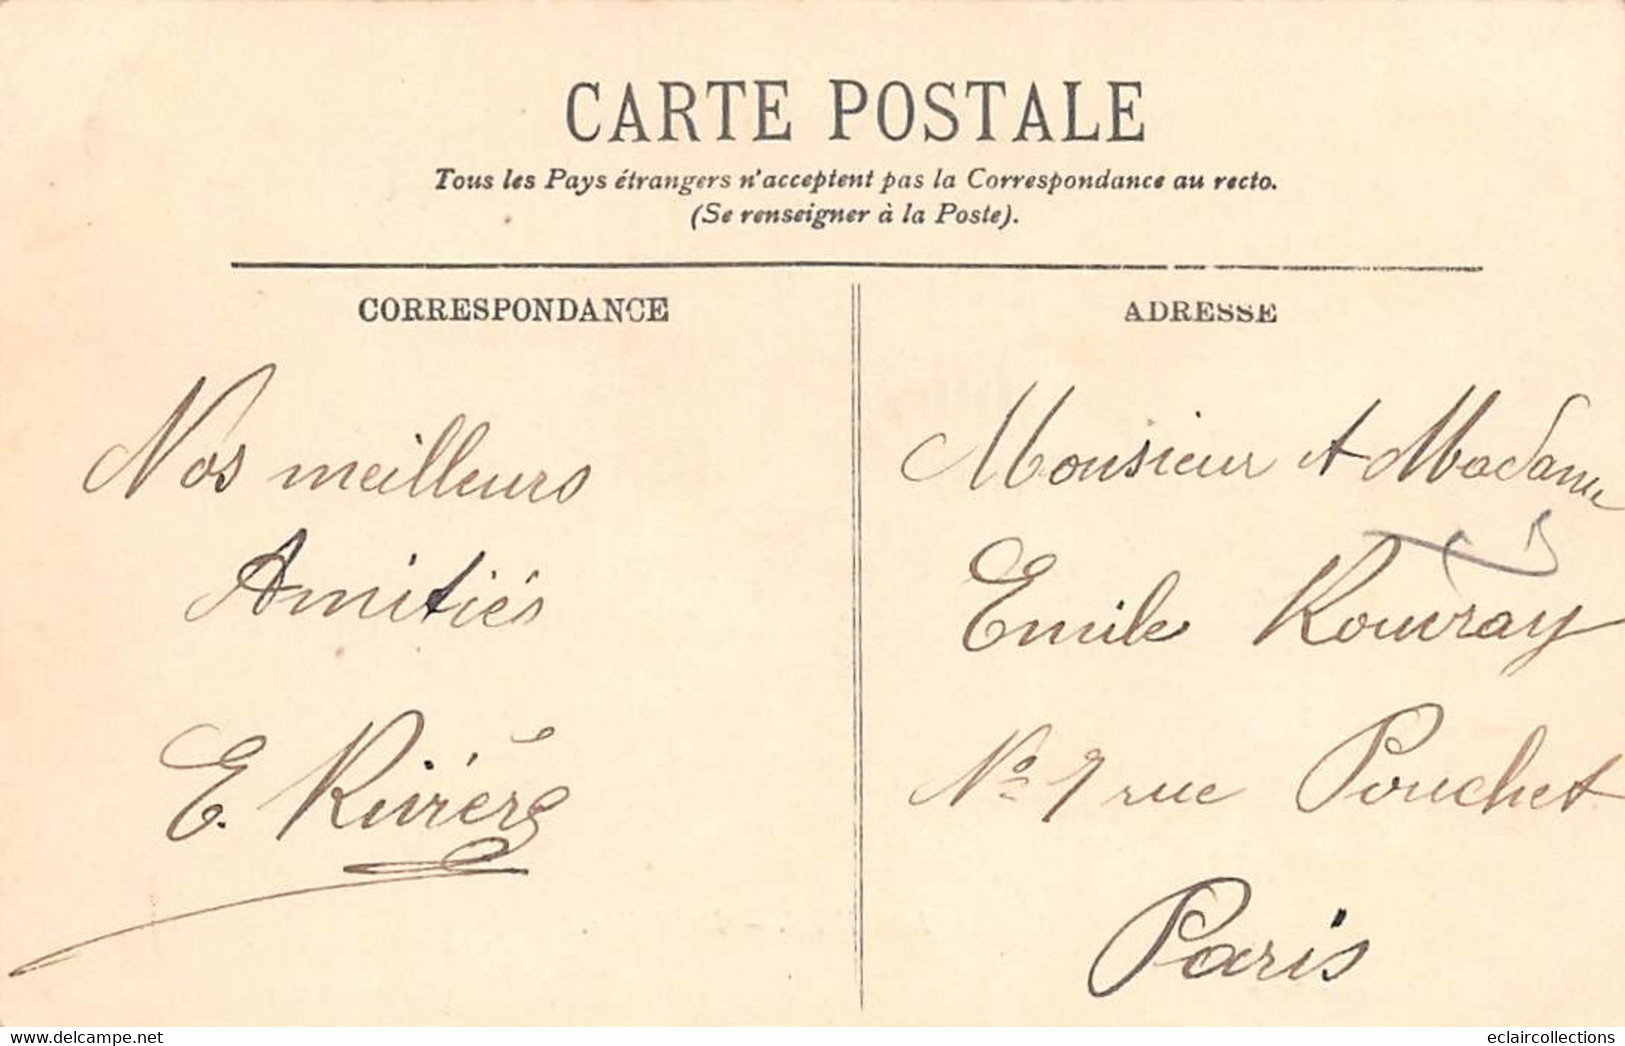 CARTE POSTALE
Tous les Pays étrangers n'acceptent pas la Correspondance au recto.
(Se renseigner à la Poste).
CORRESPONDANCE
Nos meilleurs
Amitiés
E. Rivière
ADRESSE
Monsieur et Madame
Emile Rouvray
No 7 rue Pouchet
Paris
www.delcampe.net
eclaircollections